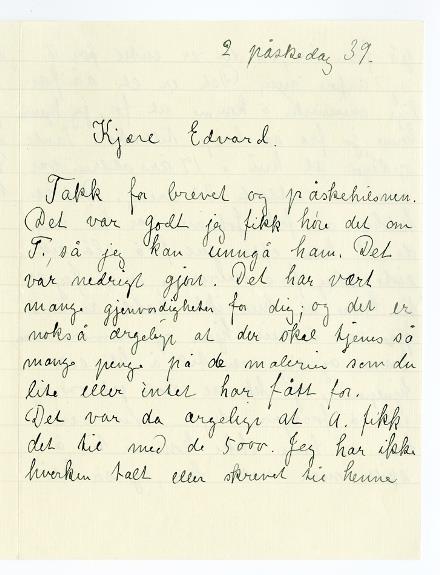 2 påskedag 39.
Kjære Edvard.
Takk for brevet og påskehilsnen.
Det var godt jeg fikk høre det om
T., så jeg kan unngå ham. Det
var nedrigt gjort. Det har vært
mange gjenvordigheter for dig; og det er
nokså ærgeligt at der skal tjenes så
mange penge på de malerier som du
lite eller intet har fått for.
Det var da ærgeligt at A. fikk
det til med de 5000. Jeg har ikke
hverken talt eller skrevet til henne